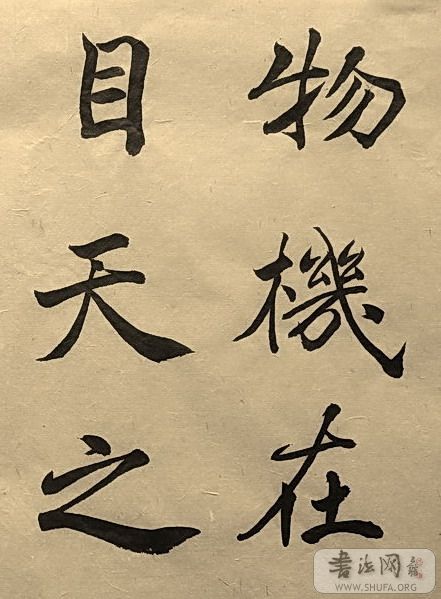 物機在
目天之
書法网
WWW.SHUFA.ORG